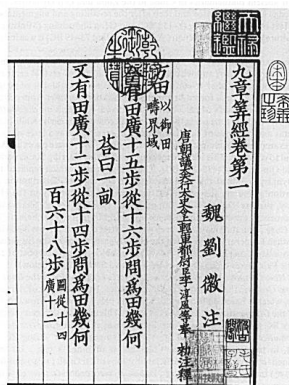 天祿繼鑑
乾隆御覽之寶
九章筭經卷第一
魏劉徽注
唐朝議大夫行太史令上輕車都尉臣李淳風等奉 勑注釋
方田 以御田疇界域
今有田廣十五步從十六步問爲田幾何
荅曰一畝
又有田廣十二步從十四步問爲田幾何
百六十八步 圖從十四廣十二